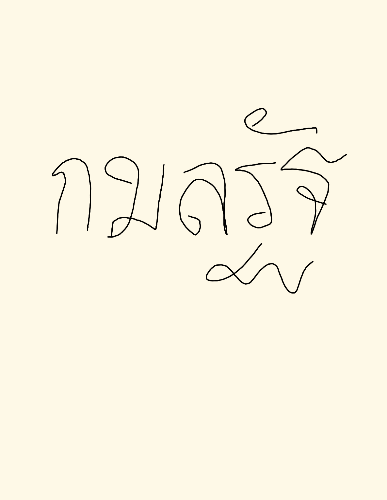 กมลรัฐ